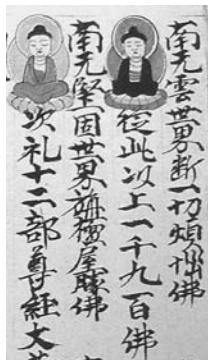 南无雲世界断一切煩惱佛
從此以上一千九百佛
南无堅固世界旃檀屋勝佛
次礼十二部尊經大